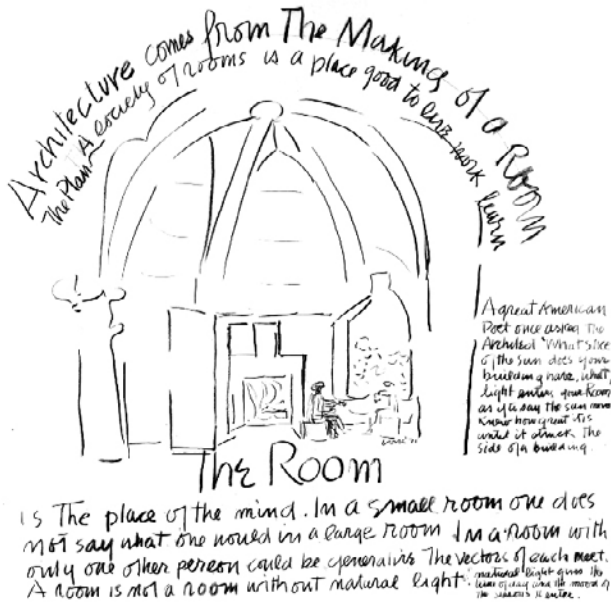 Architecture comes from The Making of a Room
The Plan A society of rooms is a place good to live work learn
A great American
Poet once asked the
Architect 'What slice
of the sun does your
building have, what
light enters your Room
as if to say the sun never
knew how great it is
until it struck the
side of a building.
The Room
is The place of the mind. In a small room one does
not say what one would in a large room In a room with
only one other person could be generative The vectors of each meet.
A room is not a room without natural light.
natural light gives the
time of day and the mood of
the seasons to enter.